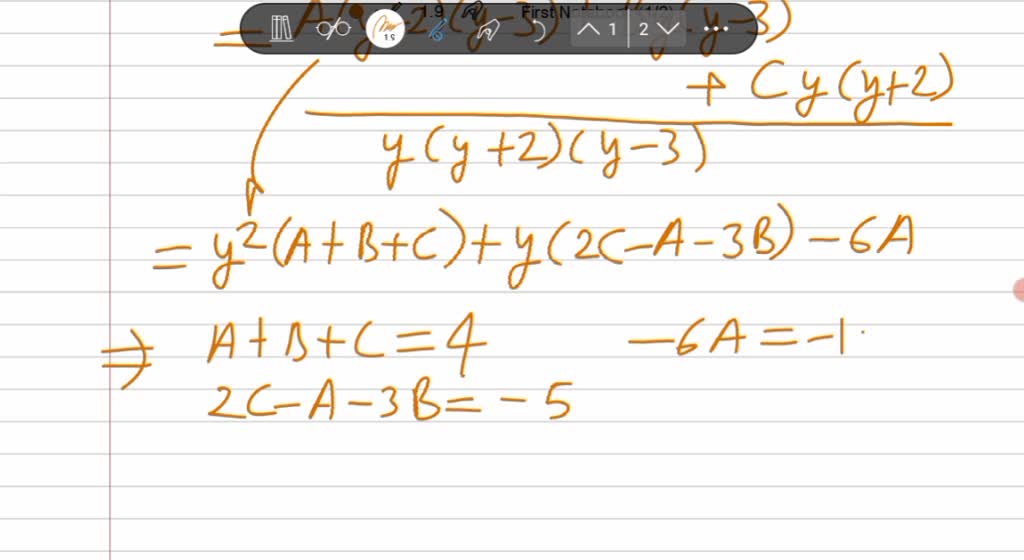 1.9 First Notebook (1/2)
1.9 1 2
= A(y+2)(y-3) (y-3)
+ Cy(y+2)
y(y+2)(y-3)
= y²(A+B+C)+y(2C-A-3B)-6A
⇒ A+B+C=4 -6A=-1
2C-A-3B=-5